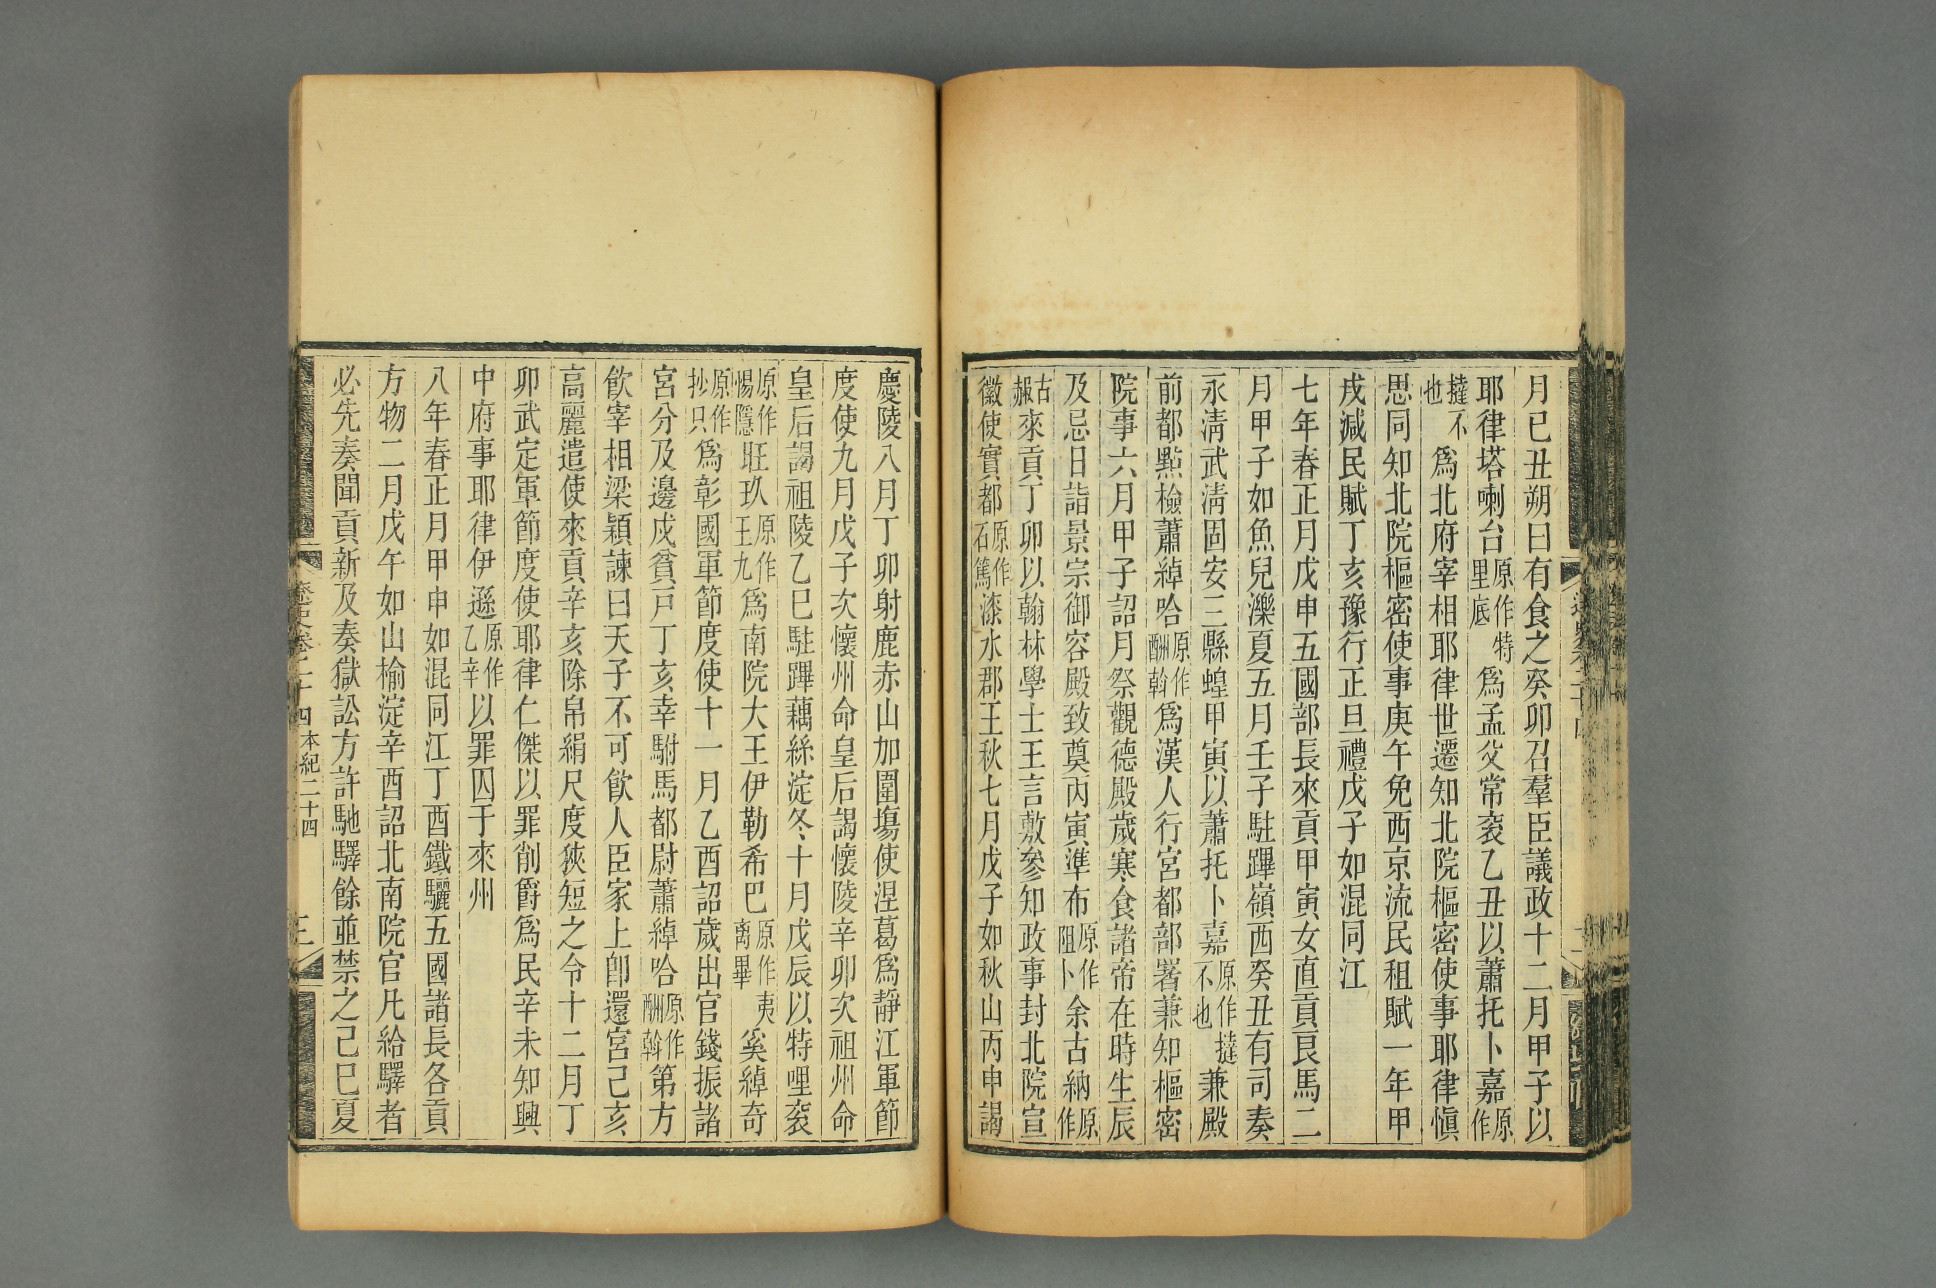 月已丑朔日有食之癸卯召羣臣議政十二月甲子以
耶律塔喇台原作特里底爲孟父常衮乙丑以蕭托卜嘉原作
撻不也爲北府宰相耶律世遷知北院樞密使事耶律愼
思同知北院樞密使事庚午免西京流民租賦一年甲
戌減民賦丁亥豫行正旦禮戊子如混同江
七年春正月戊申五國部長來貢甲寅女直貢良馬二
月甲子如魚兒濼夏五月壬子駐蹕嶺西癸丑有司奏
永淸武淸固安三縣蝗甲寅以蕭托卜嘉原作撻不也兼殿
前都點檢蕭綽哈原作酬斡爲漢人行宮都部署兼知樞密
院事六月甲子詔月祭觀德殿歲寒食諸帝在時生辰
及忌日詣景宗御容殿致奠丙寅準布原作阻卜余古納原作
古赧來貢丁卯以翰林學士王言敷參知政事封北院宣
徽使實都原作石篤漆水郡王秋七月戊子如秋山丙申謁
慶陵八月丁卯射鹿赤山加圍塲使涅葛爲靜江軍節
度使九月戊子次懷州命皇后謁懷陵辛卯次祖州命
皇后謁祖陵乙巳駐蹕藕絲淀冬十月戊辰以特哩衮
原作惕隱旺玖原作王九爲南院大王伊勒希巴原作夷离畢奚綽奇
原作抄只爲彰國軍節度使十一月乙酉詔歲出官錢振諸
宮分及邊戍貧戸丁亥幸駙馬都尉蕭綽哈原作酬斡第方
飮宰相梁穎諫曰天子不可飮人臣家上卽還宮己亥
高麗遣使來貢辛亥除帛絹尺度狹短之令十二月丁
卯武定軍節度使耶律仁傑以罪削爵爲民辛未知興
中府事耶律伊遜原作乙辛以罪囚于來州
八年春正月甲申如混同江丁酉鐵驪五國諸長各貢
方物二月戊午如山榆淀辛酉詔北南院官凡給驛者
必先奏聞貢新及奏獄訟方許馳驛餘並禁之己巳夏
遼史卷二十四 本紀二十四 三